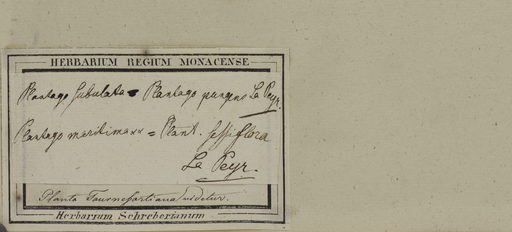 HERBARIUM REGIUM MONACENSE
Plantago subulata = Plantago pungens La Peyr.
Plantago maritima xx = Plant. sessiflora
La Peyr.
Planta Tournefortiana videtur.
Herbarium Schreberianum